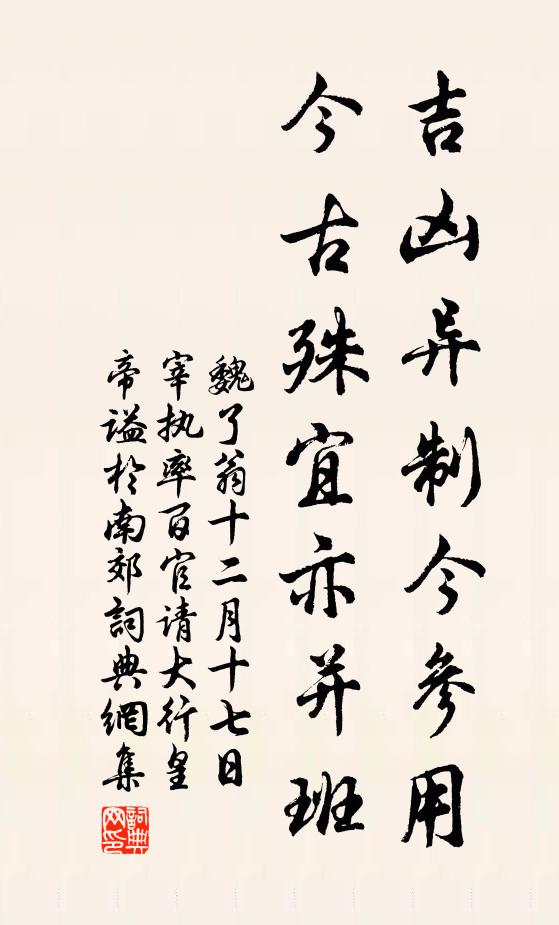 吉凶异制今参用
今古殊宜亦并班
魏了翁十二月十七日
宰执率百官请大行皇
帝谥於南郊詞典網集
詞典网印